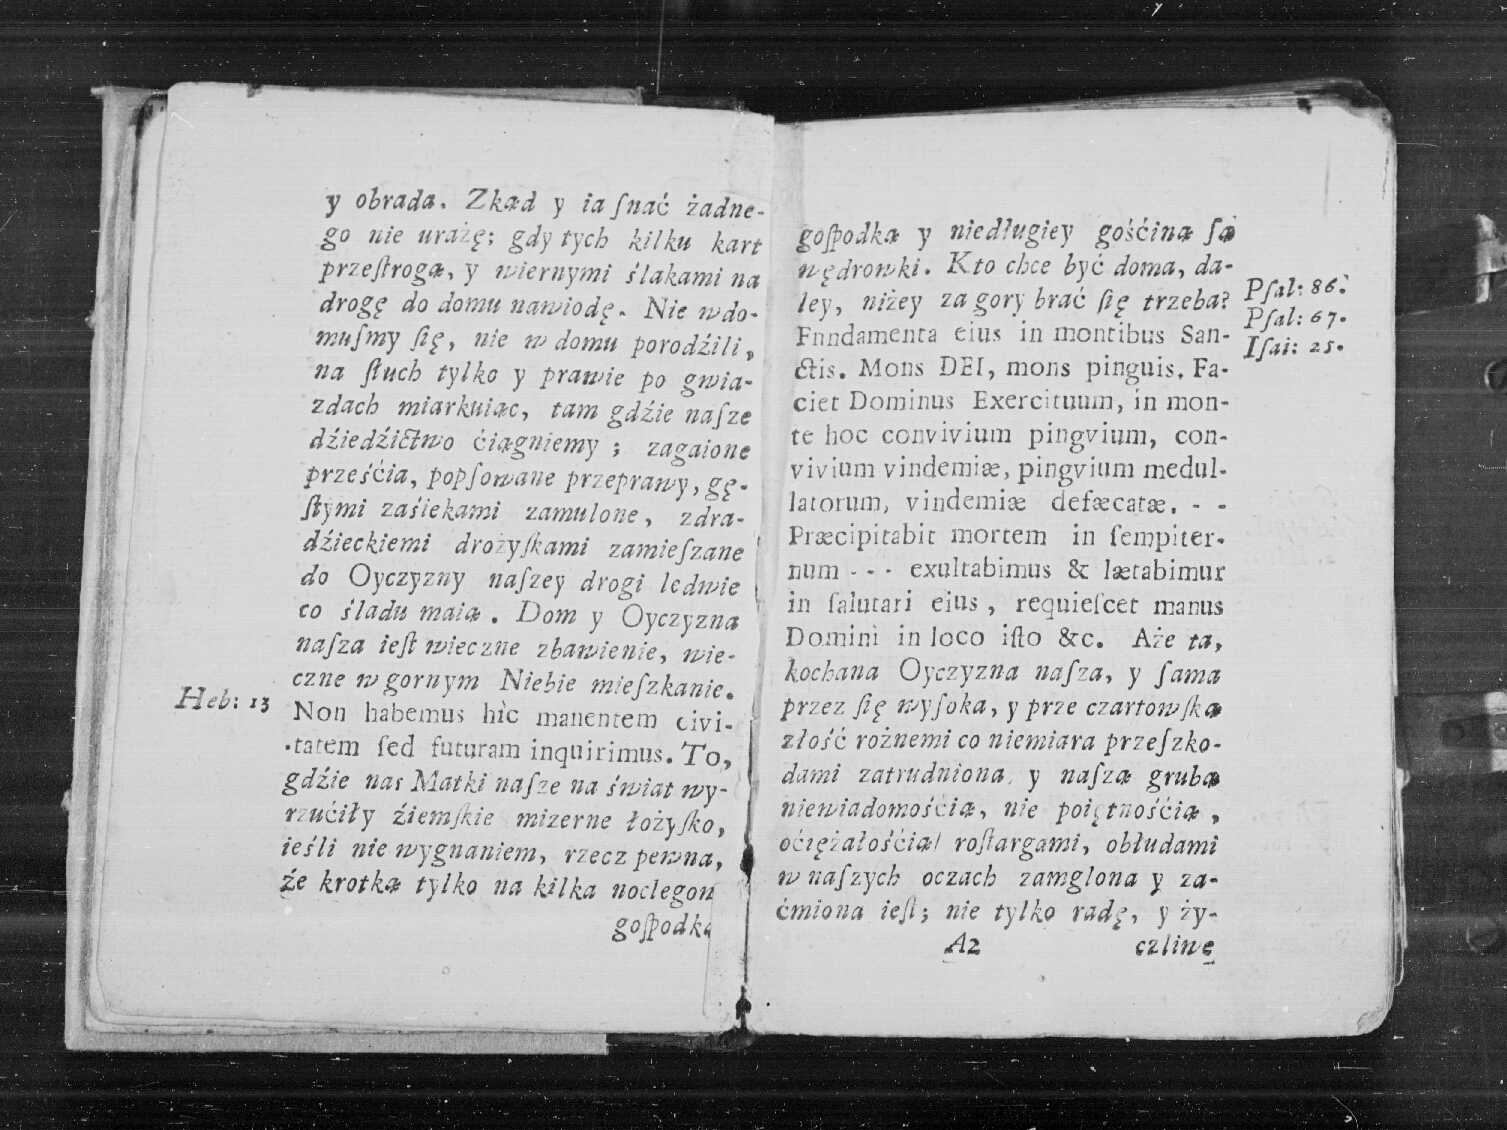 y obrada. Zkąd y ia ſnać żadne-
go nie urażę; gdy tych kilku kart
przeſtrogą, y wiernymi ślakami na
drogę do domu nawiodę. Nie w do-
muſmy ſię, nie w domu porodźili,
na ſłuch tylko y prawie po gwia-
zdach miarkuiąc, tam gdźie naſze
dźiedźictwo ćiągniemy ; zagaione
prześćia, popſowane przeprawy, gę-
ſtymi zaśiekami zamulone, zdra-
dźieckiemi drożyſkami zamieſzane
do Oyczyzny naſzey drogi ledwie
co śladu maią . Dom y Oyczyzna
naſza ieſt wieczne zbawienie, wie-
czne w gornym Niebie mieſzkanie.
Heb: 13
Non habemus hìc manentem civi-
tatem ſed futuram inquirimus. To,
gdźie nas Matki naſze na świat wy-
rzućiły źiemſkie mizerne łożyſko,
ieśli nie wygnaniem, rzecz pewna,
że krotką tylko na kilka noclegow
goſpodką
goſpodką y niedługiey gośćiną ſą
wędrowki. Kto chce być doma, da-
ley, niżey za gory brać ſię trzeba?
Psal: 86.
Psal: 67.
Iſai: 25.
Fnndamenta eius in montibus San-
ctis. Mons DEI, mons pinguis. Fa-
ciet Dominus Exercituum, in mon-
te hoc convivium pingvium, con-
vivium vindemiæ, pingvium medul-
latorum, vindemiæ defæcatæ. - -
Præcipitabit mortem in ſempiter-
num - - - exultabimus & lætabimur
in ſalutari eius , requieſcet manus
Domini in loco iſto &c. Aże ta,
kochana Oyczyzna naſza, y ſama
przez ſię wyſoka, y prze czartowſką
złość rożnemi co niemiara przeſzko-
dami zatrudniona, y naſzą grubą
niewiadomośćią, nie poiętnośćią ,
oćiężałośćią roſtargami, obłudami
w naſzych oczach zamglona y za-
ćmiona ieſt; nie tylko radę, y ży-
A2
czliwe